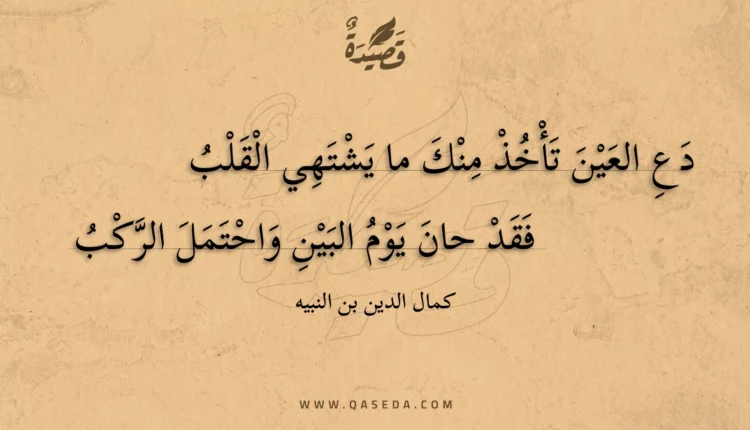 قَصِيْدَةٌ
دَعِ العَيْنَ تَأْخُذْ مِنْكَ ما يَشْتَهِي الْقَلْبُ
فَقَدْ حانَ يَوْمُ البَيْنِ وَاحْتَمَلَ الرَّكْبُ
كمال الدين بن النبيه
WWW.QASEDA.COM